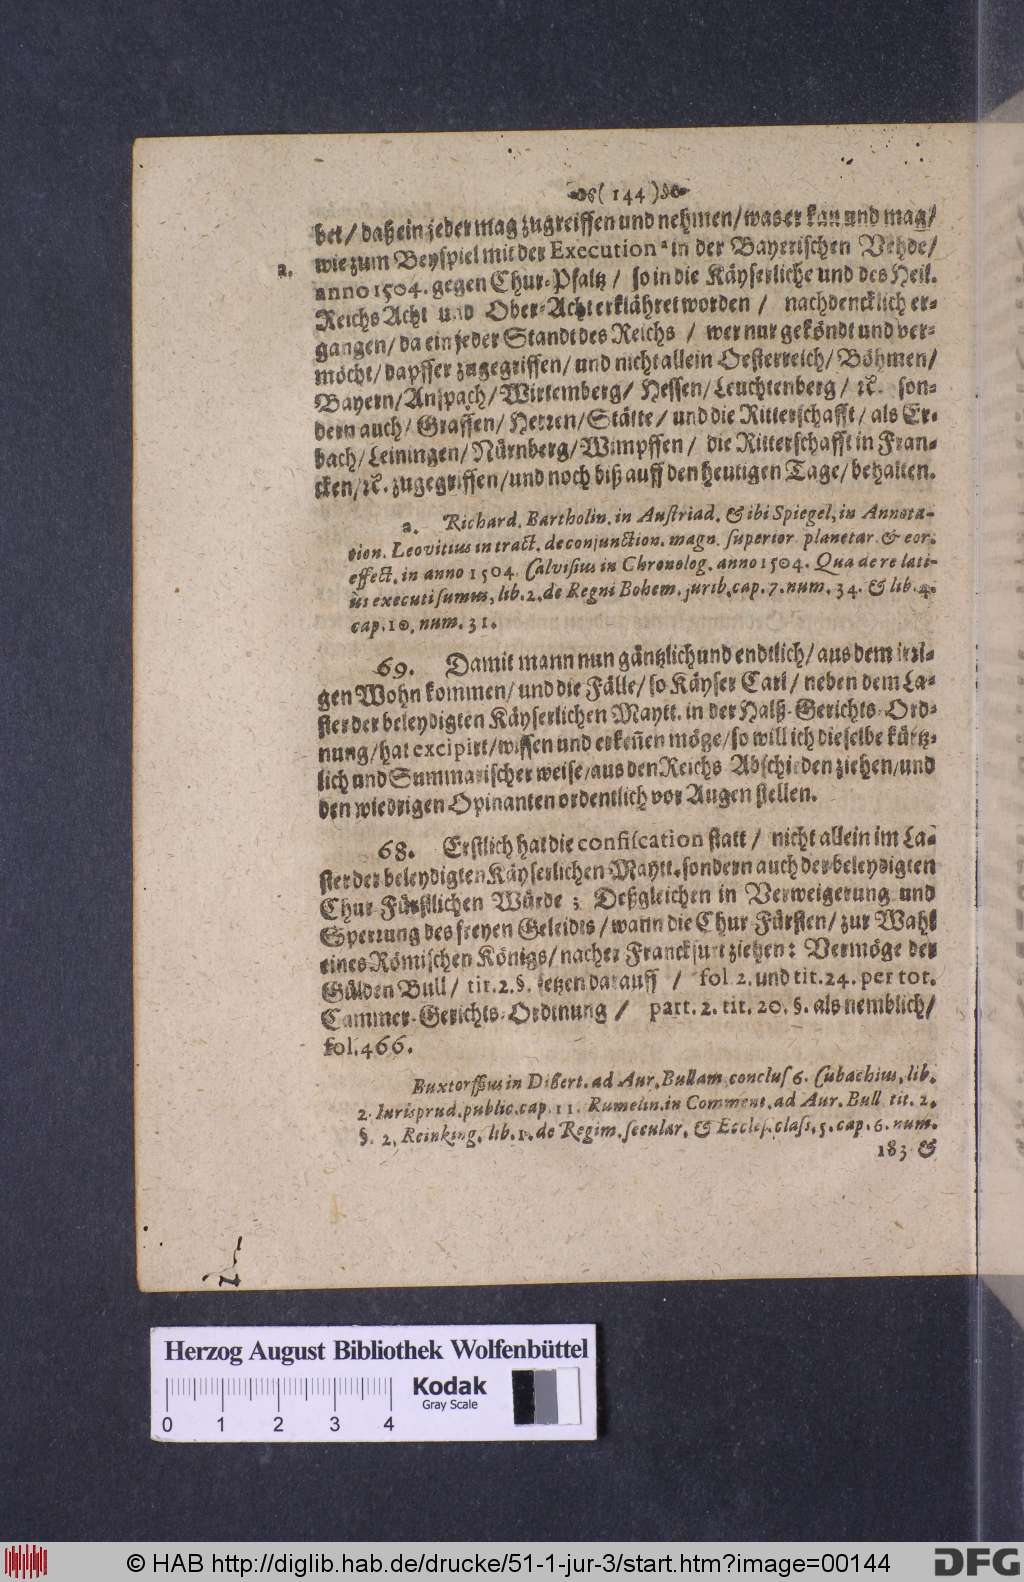 ( 144 )
bet / daß ein jeder mag zugreiffen und nehmen / was er kan und mag /
wie zum Beyspiel mit der Execution a in der Bayerischen Vehde /
a.
anno 1504. gegen Chur-Pfaltz / so in die Käyserliche und des Heil.
Reichs Acht und Ober-Acht erklähret worden / nachdencklich er-
gangen / da ein jeder Standt des Reichs / wer nur geköndt und ver-
möcht / dapffer zugegriffen / und nicht allein Oesterreich / Böhmen /
Bayern / Anspach / Wirtemberg / Hessen / Leuchtenberg / ꝛc. son-
dern auch / Graffen / Herren / Stätte / und die Ritterschafft / als Er-
bach / Leiningen / Nürnberg / Wimpffen / die Ritterschafft in Fran-
cken / ꝛc. zugegriffen / und noch biß auff den heutigen Tage / behalten.
a. Richard. Bartholin. in Austriad. & ibi Spiegel, in Annota-
tion. Leovitius in tract. de conjunction. magn. superior planetar. & eor.
effect. in anno 1504. Calvisius in Chronolog. anno 1504. Qua de re lati-
ùs executi sumus, lib. 2. de Regni Bohem. jurib. cap. 7. num. 34. & lib. 4.
cap. 10. num. 31.
69. Damit mann nun gäntzlich und endtlich / aus dem irri-
gen Wohn kommen / und die Fälle / so Käyser Carl / neben dem La-
ster der beleydigten Käyserlichen Maytt. in der Halß-Gerichts-Ord-
nung / hat excipirt / wissen und erkeñen möge / so will ich dieselbe kürtz-
lich und Summarischer weise / aus den Reichs Abschieden ziehen / und
den wiedrigen Opinanten ordentlich vor Augen stellen.
68. Erstlich hat die confiscation statt / nicht allein im La-
ster der beleydigten Käyserlichen Maytt. sondern auch der beleydigten
Chur-Fürstlichen Würde ; Deßgleichen in Verweigerung und
Sperrung des freyen Geleidts / wann die Chur Fürsten / zur Wahl
eines Römischen Königs / nacher Franckfurt ziehen : Vermöge der
Gülden Bull / tit. 2. §. setzen darauff / fol 2. und tit. 24. per tot.
Cammer-Gerichts-Ordtnung / part. 2. tit. 20. §. als nemblich /
fol. 466.
Buxtorffius in Dißert. ad Aur. Bullam conclus 6. Cubachius, lib.
2. Iurisprud. public. cap. 11. Rumelin. in Comment. ad Aur. Bull tit. 2.
§. 2. Reinking. lib. 1. de Regim. secular. & Eccles. class. 5. cap. 6. num.
183 &
Herzog August Bibliothek Wolfenbüttel
0 1 2 3 4
Kodak
Gray Scale
© HAB http://diglib.hab.de/drucke/51-1-jur-3/start.htm?image=00144
DFG